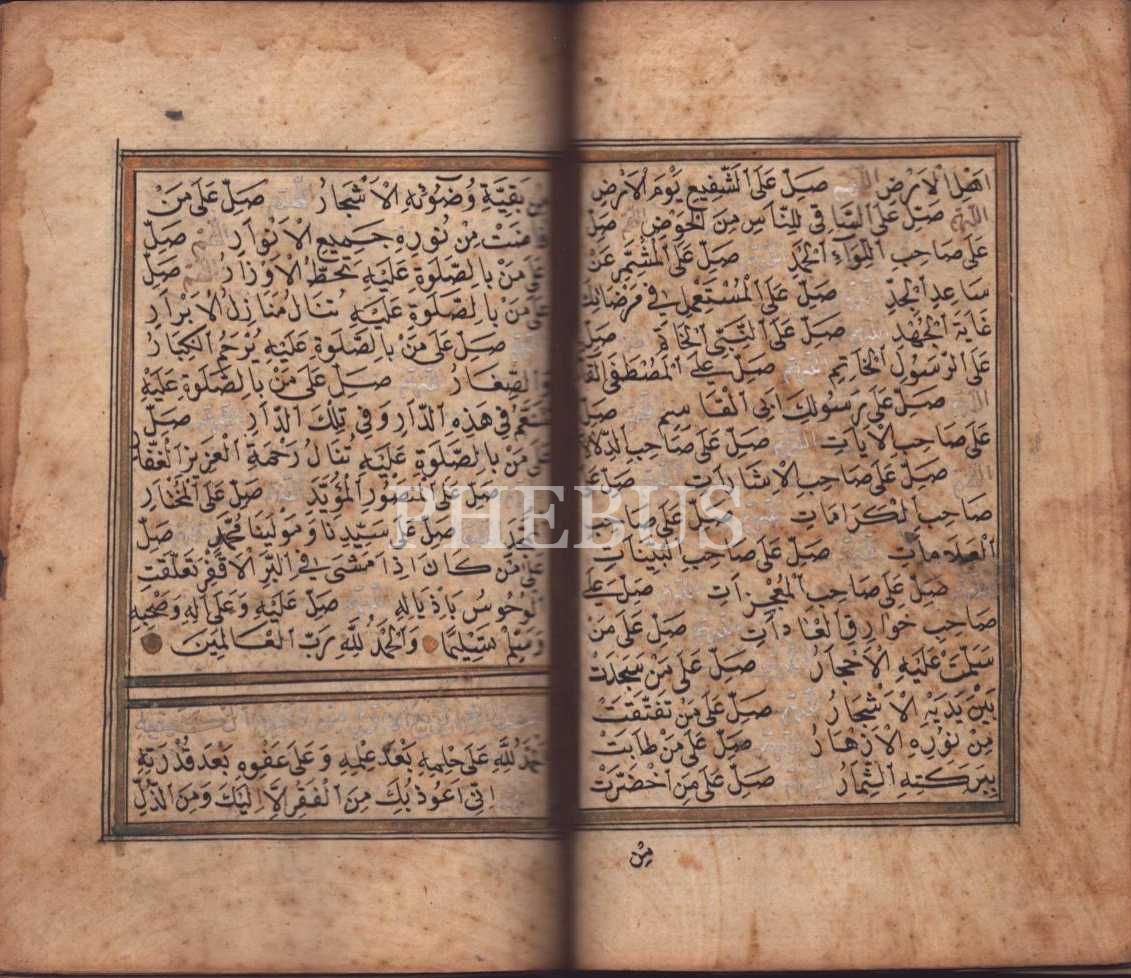 اَهْلِ الْاَرْضِ اللّٰهُمَّ صَلِّ عَلَى الشَّفِيعِ يَوْمَ الْاَرْضِ
اللّٰهُمَّ صَلِّ عَلَى السَّاقِي لِلنَّاسِ مِنَ الْحَوْضِ صَلِّ
عَلَى صَاحِبِ اللِّوَآءِ الْحَمْدِ صَلِّ عَلَى الْمُشَمِّرِ عَنْ
سَاعِدِ الْجِدِّ صَلِّ عَلَى الْمُسْتَعْمِلِ فِي مَرْضَاتِكَ
غَايَةَ الْجُهْدِ صَلِّ عَلَى النَّبِيِّ الْخَاتَمِ صَلِّ
عَلَى الرَّسُولِ الْخَاتِمِ صَلِّ عَلَى الْمُصْطَفَى
صَلِّ عَلَى رَسُولِكَ اَبِى الْقَاسِمِ صَلِّ
عَلَى صَاحِبِ الْاٰيَاتِ صَلِّ عَلَى صَاحِبِ
صَلِّ عَلَى صَاحِبِ الْاِشَارَاتِ صَلِّ عَلَى
صَاحِبِ الْكَرَامَاتِ صَلِّ عَلَى صَاحِبِ
الْعَلَامَاتِ صَلِّ عَلَى صَاحِبِ الْبَيِّنَاتِ
صَلِّ عَلَى صَاحِبِ الْمُعْجِزَاتِ صَلِّ عَلَى
صَاحِبِ خَوَارِقِ الْعَادَاتِ صَلِّ عَلَى مَنْ
سَلَّمَتْ عَلَيْهِ الْاَحْجَارُ صَلِّ عَلَى مَنْ سَجَدَتْ
بَيْنَ يَدَيْهِ الْاَشْجَارُ صَلِّ عَلَى مَنْ تَفَتَّقَتْ
مِنْ نُورِهِ الْاَزْهَارُ صَلِّ عَلَى مَنْ طَابَتْ
بِبَرَكَتِهِ الثِّمَارُ صَلِّ عَلَى مَنِ اخْضَرَّتْ
مِنْ
مِنْ بَقِيَّةِ وُضُوئِهِ الْاَشْجَارُ صَلِّ عَلَى مَنْ
فَاضَتْ مِنْ نُورِهِ جَمِيعُ الْاَنْوَارِ صَلِّ
عَلَى مَنْ بِالصَّلٰوةِ عَلَيْهِ تُحَطُّ الْاَوْزَارُ صَلِّ
عَلَى مَنْ بِالصَّلٰوةِ عَلَيْهِ تُنَالُ مَنَازِلُ الْاَبْرَارِ
صَلِّ عَلَى مَنْ بِالصَّلٰوةِ عَلَيْهِ يُرْحَمُ الْكِبَارُ
وَالصِّغَارُ صَلِّ عَلَى مَنْ بِالصَّلٰوةِ عَلَيْهِ
نَتَنَعَّمُ فِي هٰذِهِ الدَّارِ وَفِي تِلْكَ الدَّارِ صَلِّ
عَلَى مَنْ بِالصَّلٰوةِ عَلَيْهِ تُنَالُ رَحْمَةُ الْعَزِيزِ الْغَفَّارِ
صَلِّ عَلَى الْمَنْصُورِ الْمُؤَيَّدِ صَلِّ عَلَى الْمُخْتَارِ
صَلِّ عَلَى سَيِّدِنَا وَمَوْلٰينَا مُحَمَّدٍ صَلِّ
عَلَى مَنْ كَانَ اِذَا مَشَى فِي الْبَرِّ الْاَقْفَرِ تَعَلَّقَتِ
الْوُحُوسُ بِاَذْيَالِهِ صَلِّ عَلَيْهِ وَعَلَى اٰلِهِ وَصَحْبِهِ
وَسَلِّمْ تَسْلِيمًا وَالْحَمْدُ لِلّٰهِ رَبِّ الْعَالَمِينَ
اَلْحَمْدُ لِلّٰهِ عَلَى حِلْمِهِ بَعْدَ عِلْمِهِ وَعَلَى عَفْوِهِ بَعْدَ قُدْرَتِهِ
اِنِّى اَعُوذُ بِكَ مِنَ الْفَقْرِ اِلَّا اِلَيْكَ وَمِنَ الذُّلِّ
PHEBUS